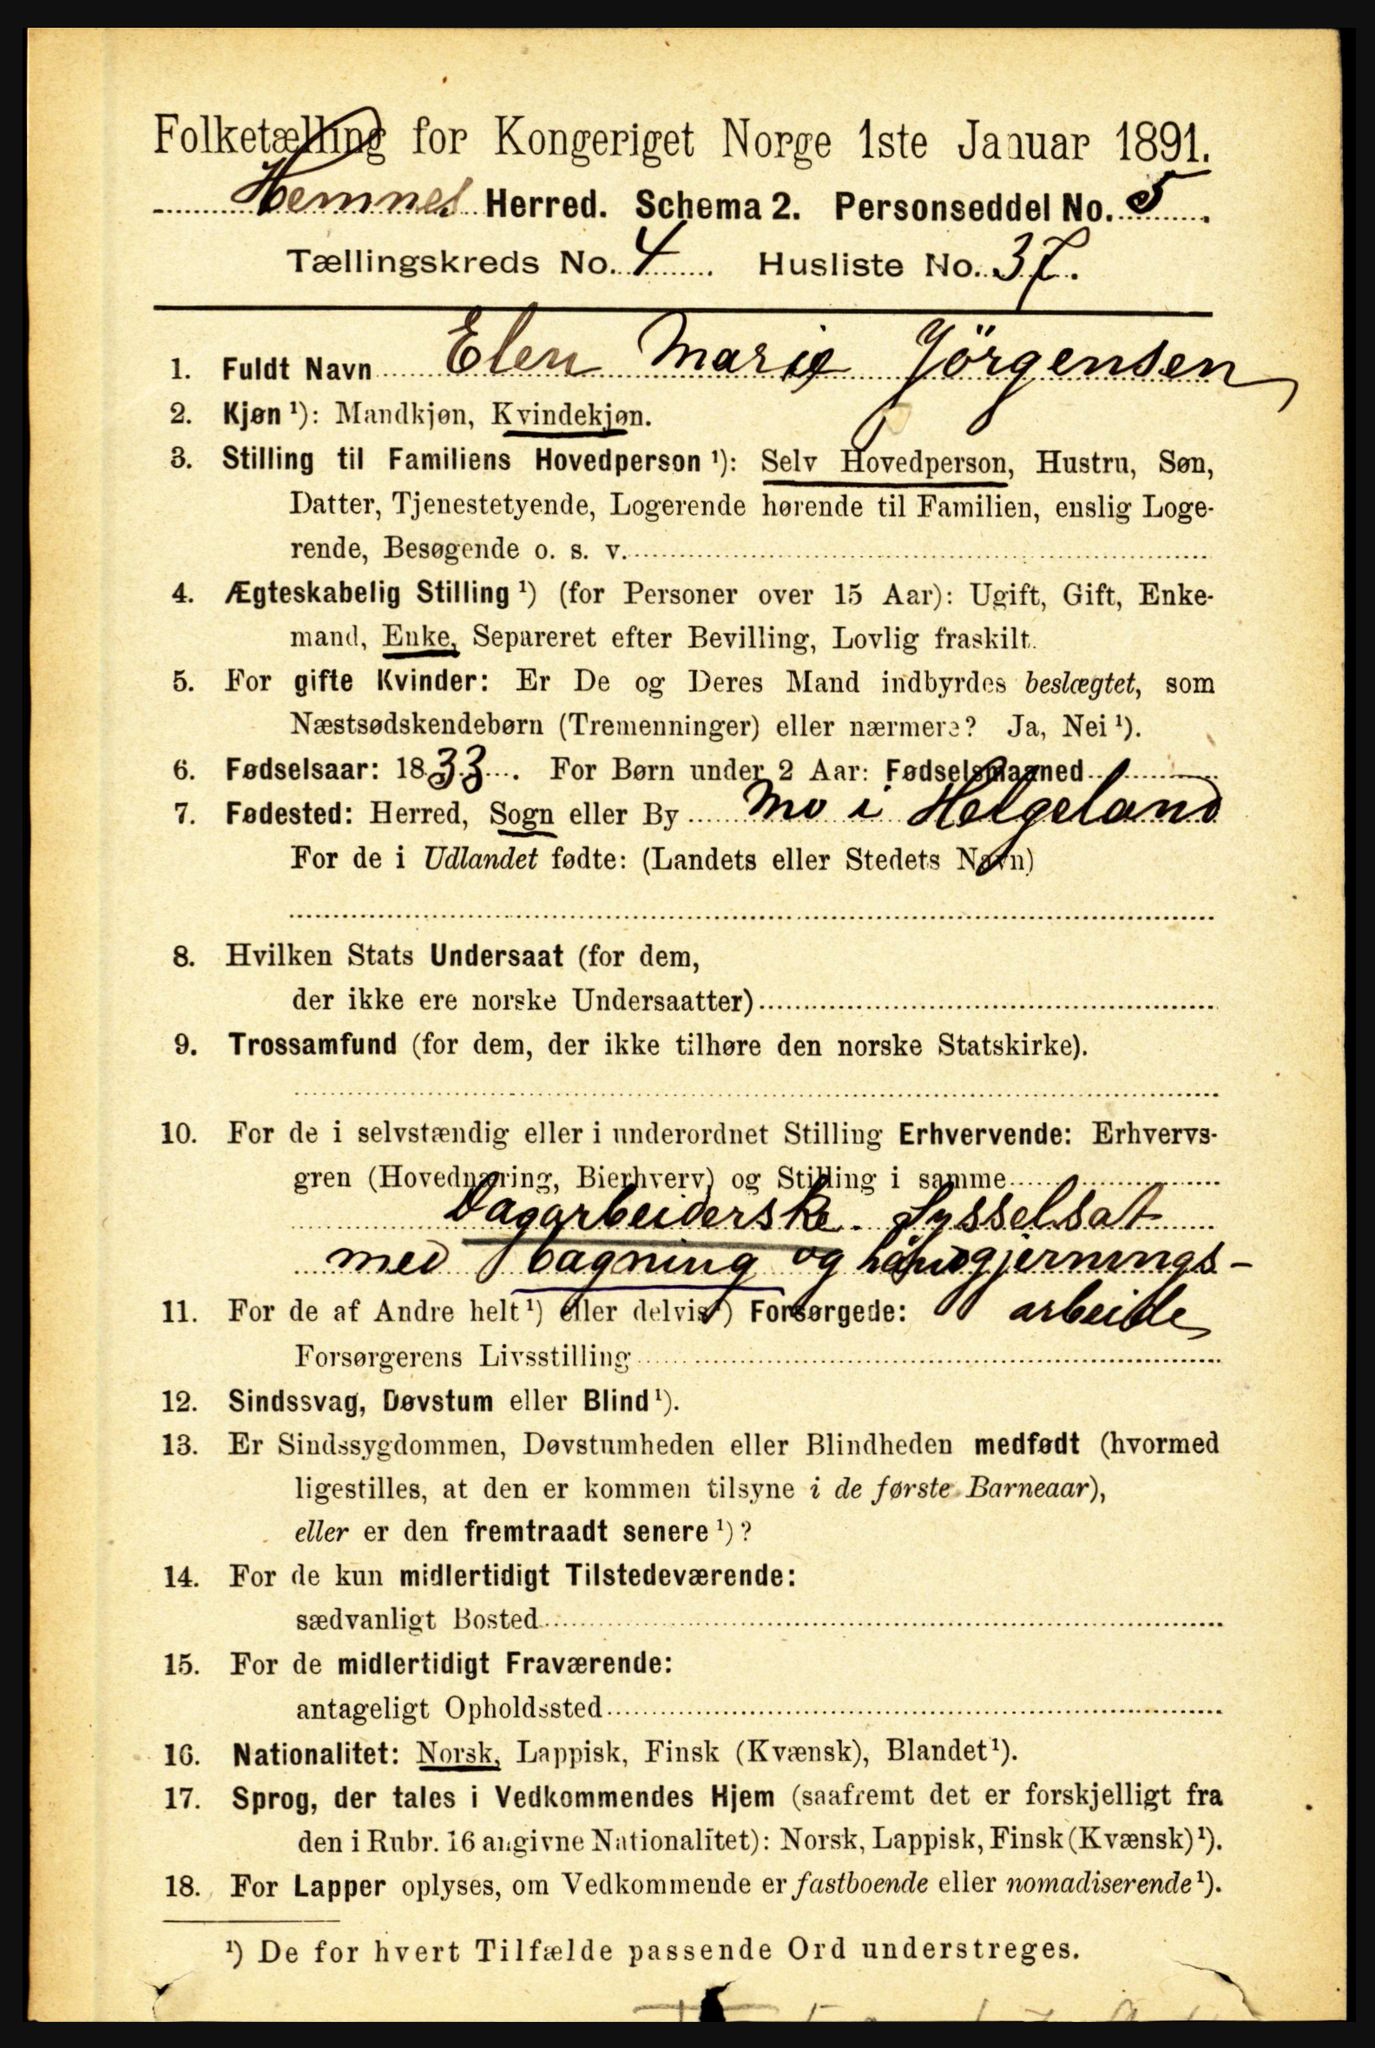 Folketælling for Kongeriget Norge 1ste Januar 1891.
Hemnes Herred. Schema 2. Personseddel No. 5.
Tællingskreds No. 4. Husliste No. 37.
1. Fuldt Navn Elen Marie Jörgensen
2. Kjøn ¹): Mandkjøn, Kvindekjøn.
3. Stilling til Familiens Hovedperson ¹): Selv Hovedperson, Hustru, Søn,
Datter, Tjenestetyende, Logerende hørende til Familien, enslig Loge-
rende, Besøgende o. s. v.
4. Ægteskabelig Stilling ¹) (for Personer over 15 Aar): Ugift, Gift, Enke-
mand, Enke, Separeret efter Bevilling, Lovlig fraskilt.
5. For gifte Kvinder: Er De og Deres Mand indbyrdes beslægtet, som
Næstsødskendebørn (Tremenninger) eller nærmere? Ja, Nei ¹).
6. Fødselsaar: 1833. For Børn under 2 Aar: Fødselsmaaned
7. Fødested: Herred, Sogn eller By Mo i Helgeland
For de i Udlandet fødte: (Landets eller Stedets Navn)
8. Hvilken Stats Undersaat (for dem,
der ikke ere norske Undersaatter)
9. Trossamfund (for dem, der ikke tilhøre den norske Statskirke).
10. For de i selvstændig eller i underordnet Stilling Erhvervende: Erhvervs-
gren (Hovednæring, Bierhverv) og Stilling i samme
Dagarbeiderske. Sysselsat
med bagning og håndgjernings-
11. For de af Andre helt ¹) eller delvis ¹) Forsørgede: arbeide
Forsørgerens Livsstilling
12. Sindssvag, Døvstum eller Blind ¹).
13. Er Sindssygdommen, Døvstumheden eller Blindheden medfødt (hvormed
ligestilles, at den er kommen tilsyne i de første Barneaar),
eller er den fremtraadt senere ¹)?
14. For de kun midlertidigt Tilstedeværende:
sædvanligt Bosted
15. For de midlertidigt Fraværende:
antageligt Opholdssted
16. Nationalitet: Norsk, Lappisk, Finsk (Kvænsk), Blandet ¹).
17. Sprog, der tales i Vedkommendes Hjem (saafremt det er forskjelligt fra
den i Rubr. 16 angivne Nationalitet): Norsk, Lappisk, Finsk (Kvænsk) ¹).
18. For Lapper oplyses, om Vedkommende er fastboende eller nomadiserende ¹).
¹) De for hvert Tilfælde passende Ord understreges.